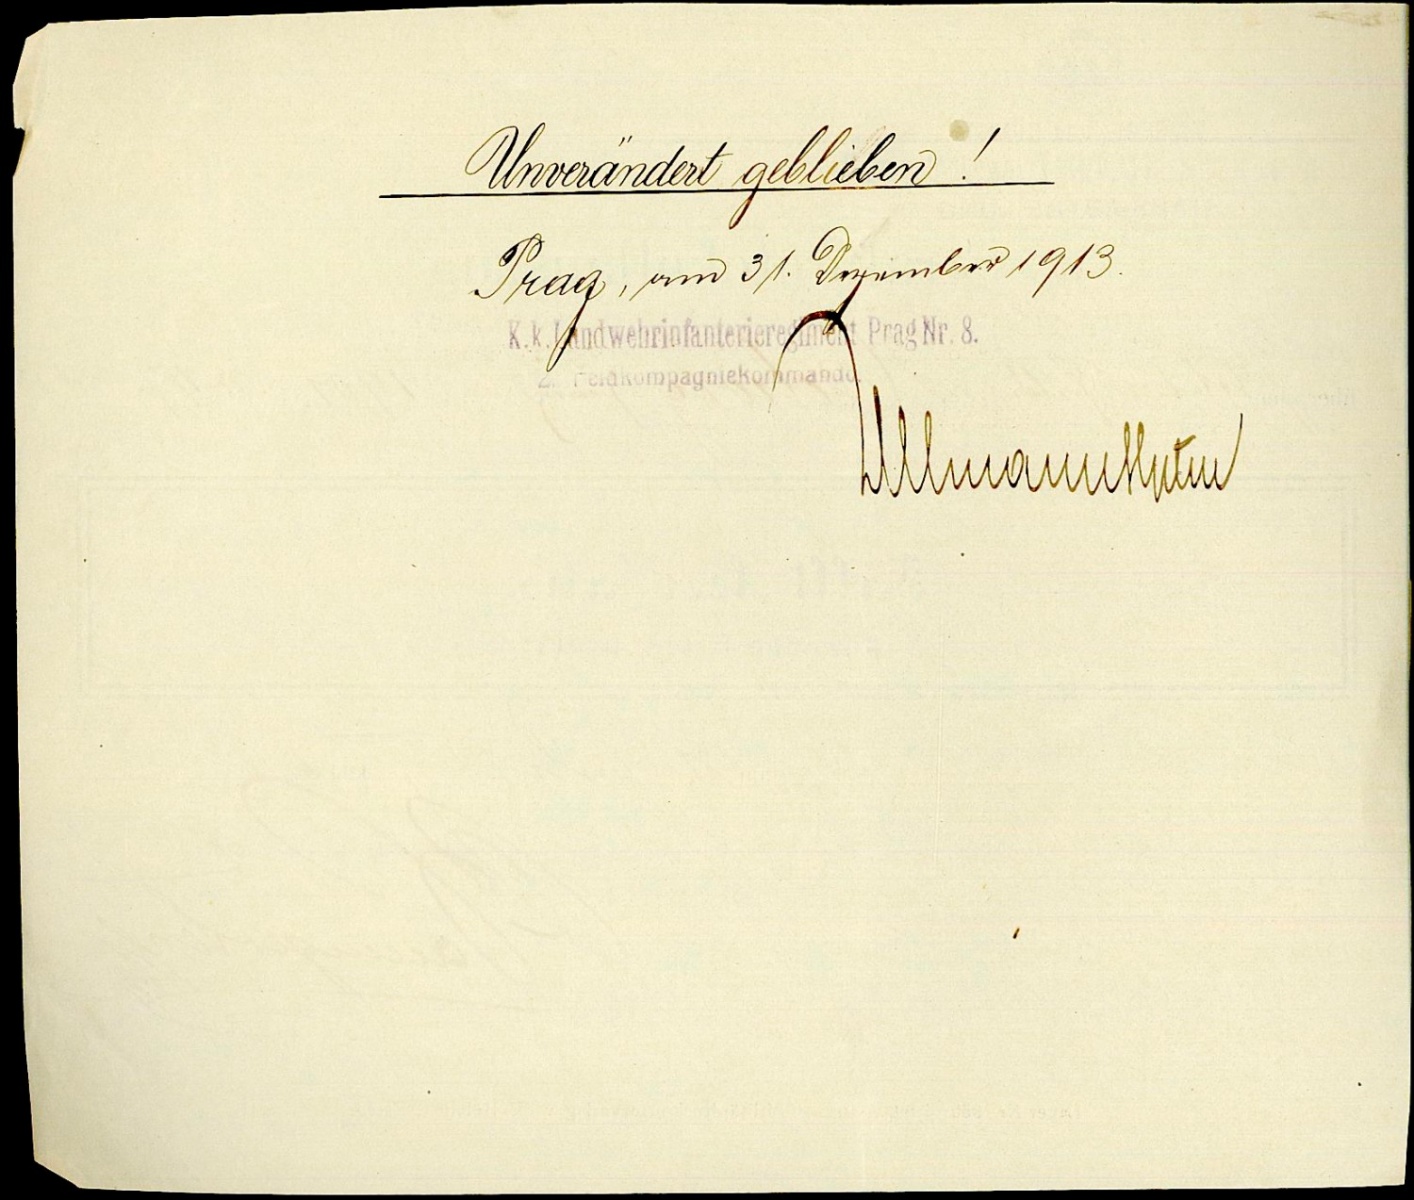 Unverändert geblieben!
Prag, am 31. Dezember 1913.
K.k. Landwehrinfanterieregiment Prag Nr. 8.
2. Feldkompagniekommando.
Ullmann Hptm